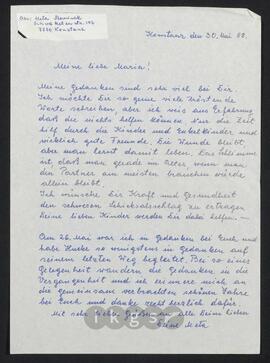 Abs. Meta
Konstanz
Konstanz den 30. Mai 88.
Meine liebe Maria!
Meine Gedanken sind sehr viel bei Dir.
Ich möchte Dir so gerne viele tröstende
Worte schreiben, aber ich weis aus Erfahrung
daß die nichts helfen können. Nur die Zeit
hilft durch die Kinder und Enkelkinder und
wirklich gute Freunde. Die Wunde bleibt,
aber man lernt damit leben. Das Schlimme
ist, daß man gerade im Alter wenn man
den Partner am meisten brauchen würde
allein bleibt.
Ich wünsche Dir Kraft und Gesundheit
den schweren Schicksalsschlag zu ertragen
Deine lieben Kinder werden Dir dabei helfen. —
Am 26. Mai war ich in Gedanken bei Euch und
habe so wenigstens in Gedanken auf
seinem letzten Weg begleitet. Bei so einer
Gelegenheit wandern die Gedanken in die
Vergangenheit und ich erinnere mich an
die gemeinsam verbrachten schönen Jahre
bei Euch und danke recht herzlich dafür.
Mit sehr lieben Grüßen an alle Deine Lieben
Deine Meta